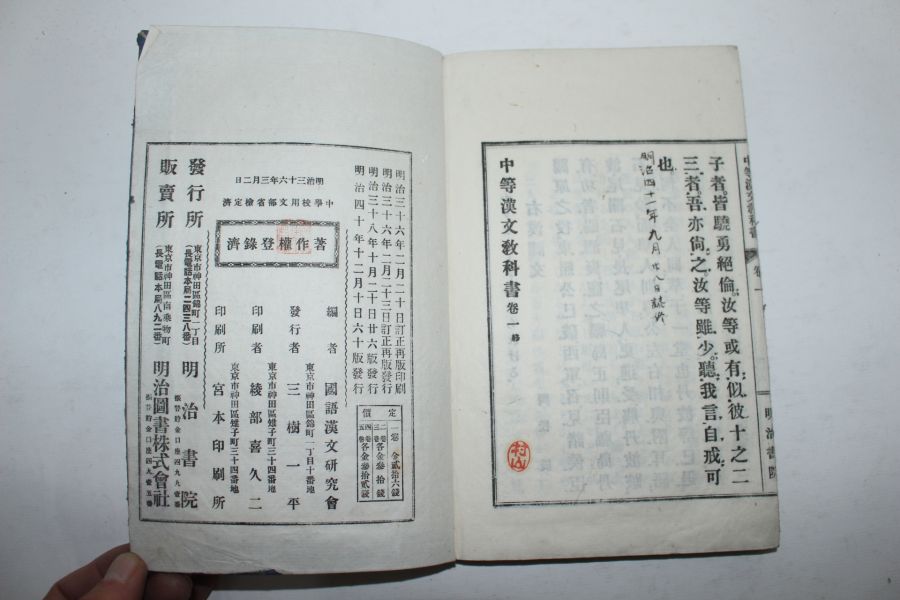 子者。皆驍勇絕倫。汝等或有似彼十之二
三者。吾亦尙之。汝等雖少。聽我言自戒可
也
明治四十一年九月
中等漢文教科書 卷一 終
明治書院
明治三十六年二月二十日訂正再版印刷
明治三十六年二月二十三日訂正再版發行
明治三十八年十月二十日廿六版發行
明治四十年十二月十日六十版發行
定價
一卷 金貳拾六錢
二卷 三卷 各金參拾錢
四卷 五卷 各金參拾貳錢
明治三十六年三月二日
中學校用文部省檢定濟
著作權登錄濟
編者 國語漢文研究會
東京市神田區錦町一丁目十番地
發行者 三樹一平
東京市神田區雉子町三十四番地
印刷者 綾部喜久二
東京市神田區雉子町三十四番地
印刷所 宮本印刷所
發行所 東京市神田區錦町一丁目 (長電話本局二四三八番) 明治書院
販賣所 東京市神田區南乘物町 (長電話本局八九二番) 明治圖書株式會社